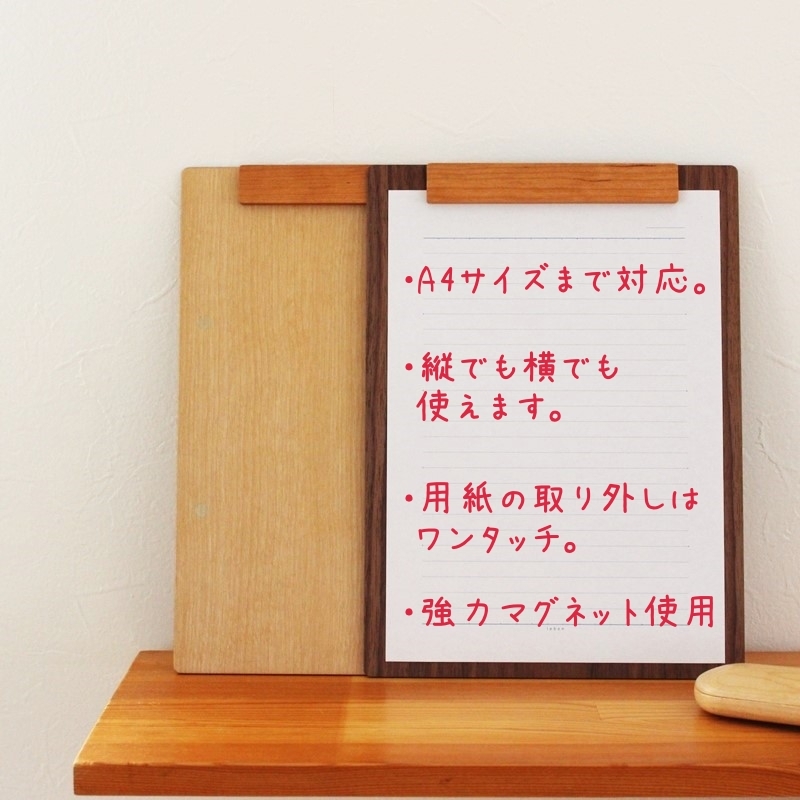 ・A4サイズまで対応。
・縦でも横でも
使えます。
・用紙の取り外しは
ワンタッチ。
・強力マグネット使用